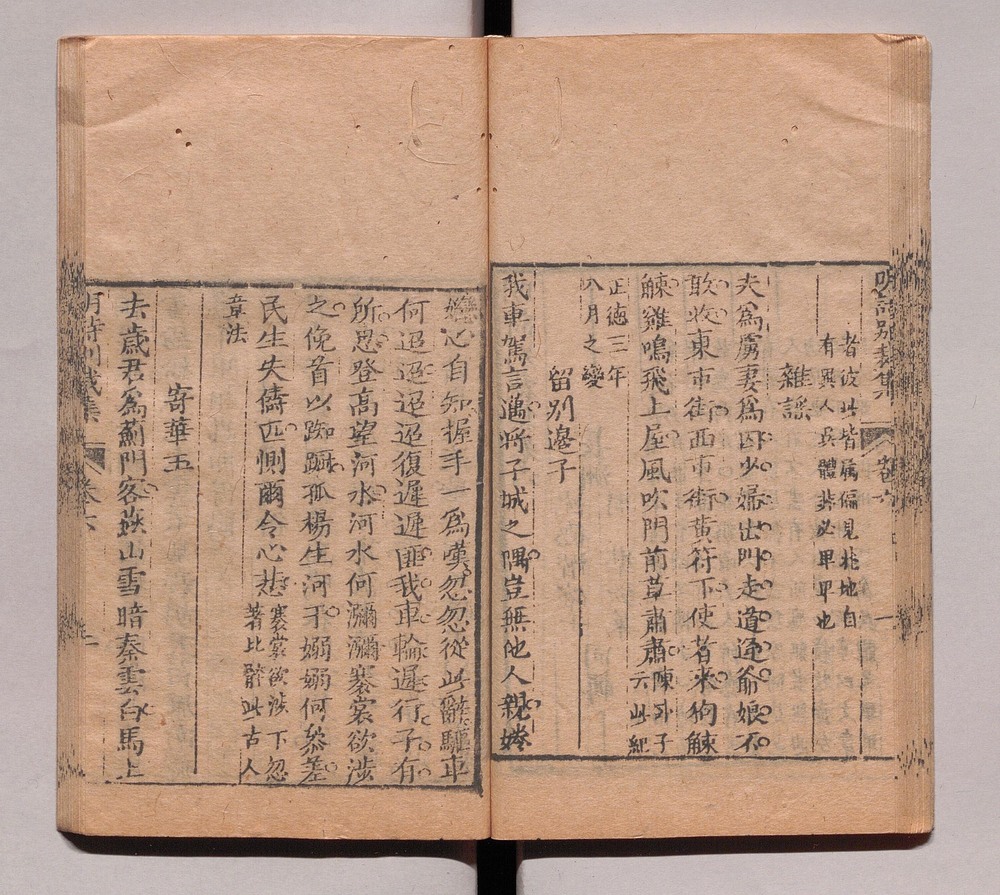 明詩別裁集 卷六 一
者彼此皆屬偏見北地自
有異人吳體裁必卑卑也
雜謠
夫為虜妻為囚少婦出門走道逼爺娘不
敢收東市街西市街黃符下使者來狗觫
觫雞鳴飛上屋風吹門前草肅肅陳臥子
云此紀
正德三年
八月之變
留別邊子
我車駕言邁將子城之隅豈無他人親婘
㜻心自知握手一為嘆忽忽從此辭驅車
何迢迢迢迢復遲遲匪我車輪遲行子有
所思登高望河水河水何瀰瀰褰裳欲涉
之俛首以踟躕孤楊生河干嫋嫋何參差
民生失儔匹惻爾令心悲褰裳欲涉下忽
著比體此古人
章法
寄華玉
去歲君為薊門客燕山雪暗秦雲白馬上
明詩別裁集 卷六 二